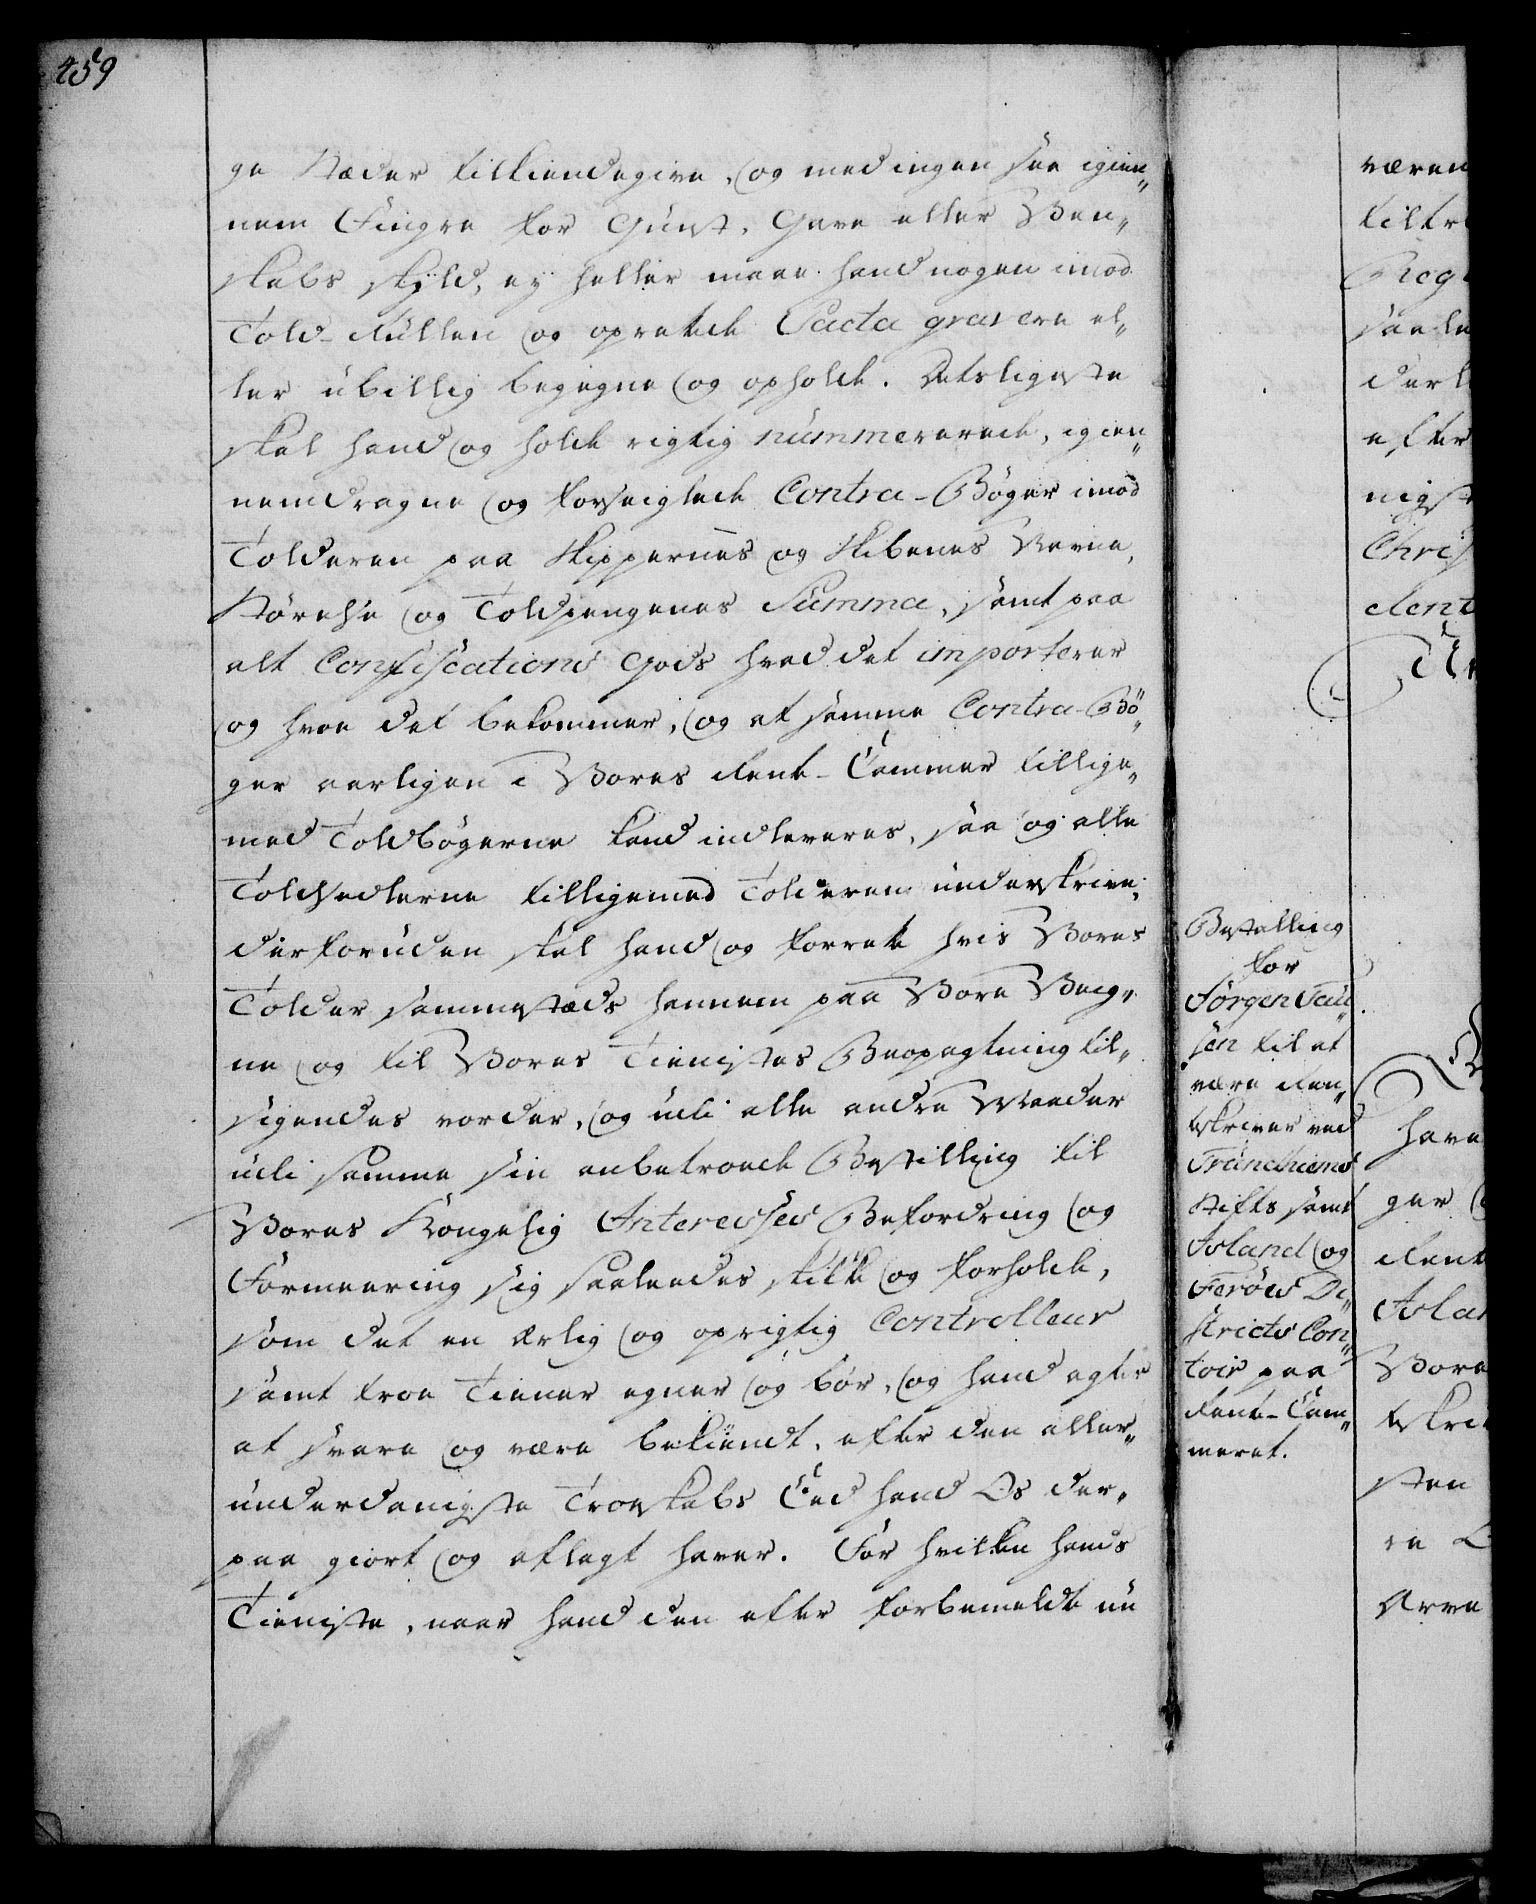 459
ge Stæder tilkiendegive, og med ingen see igien„
nem Fingre for Gunst, Gave eller Ven„
skabs skyld, ey heller maae hand nogen imod
Told-Rullen og oprettede Pacta gravere el„
ler ubillig begegne og opholde. Detsligeste
skal hand og holde rigtig nummererede, igien„
nemdragne og forseiglede Contra-Bøger imod
Tolderen paa Skippernes og Skibenes Navne,
Størelse og Toldpengenes Summa, samt paa
alt Confiscations Gods hvad det importerer
og hvoe det bekommer, og at samme Contra-Bø„
ger aarligen i Vores Rente-Cammer tillige„
med Toldbøgerne kand indleveres, saa og alle
Toldsedlerne tilligemed Tolderen underskrive,
derforuden skal hand og forrette hvis Vores
Tolder sammestæds hannem paa Vore Veig„
ne og til Vores Tienistes Beopagtning til„
sigendes vorder, og udi alle andre Maader
udi samme sin anbetroede Bestilling til
Vores Kongelig Interesses Befordring og
Formeering sig saaledes skikke og forholde,
som det en ærlig og oprigtig Controlleur
samt troe Tiener egner og bør, og hand agter
at svare og være bekiendt, efter den aller„
underdanigste Troeskabs Eed hand Os der„
paa giort og aflagt haver. For hvilken hands
Tieniste, naar hand den efter forbemeldte nu
Bestalling
for
Jørgen Pau„
sen til at
være Ren„
teskriver ved
Trundhiems
Stifts samt
Island og
Ferøes Di„
stricts Con„
toir paa
Rente-Cam„
meret.
væren
tiltr
Reg
saale
derl
efter
nigst
Chris
dent
have
ger
Rente
Islan
Vore
teskri
sten
re
Arve